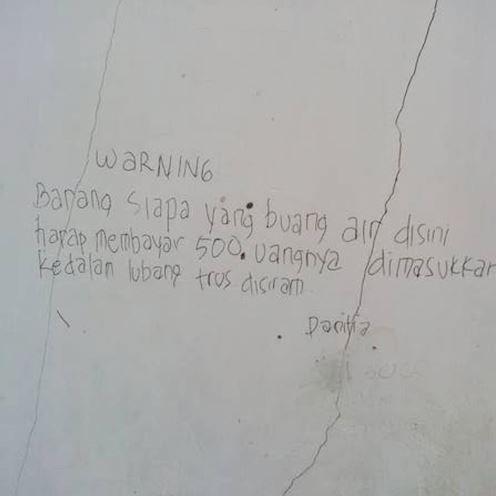 WARNING
Barang siapa yang buang air disini
harap membayar 500. uangnya dimasukkan
kedalan lubang trus disiram
Panitia